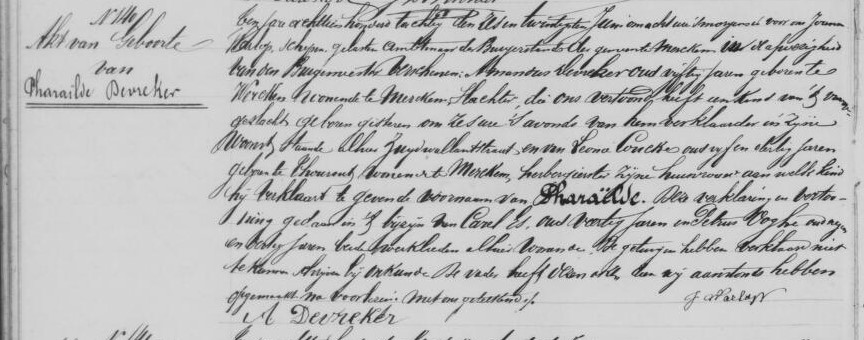 N° 140
Akt van Geboorte
van
Pharaïlde Devreker
Een jaar achttien honderd tachtig den zes en twintigsten Juni om acht ure 's morgens voor ons Joannes
Schepen, gelasten Amtenaar der Burgerstand der gemeente Merckem in de afwezigheid
van den Burgemeester verschenen: Amandus Devreker oud vijftig jaren geboren te
Wercken wonende te Merckem, Slachter, die ons vertoond heeft een Kind van 't vrouwe-
geslacht geboren gisteren om zes ure 's avonds van hem verklaarder in zijne
Woonst, staande alhier Zuydwallantstraat, en van Leonie Coucke oud vyf en dertig jaren
geboren te Thourout, wonende te Merckem, herbergierster zijne huisvrouw aan welk kind
hij verklaart te geven de voornaam van Pharaïlde. Deze verklaring en vertoo-
ning gedaan in 't bijzijn van Carel Es, oud veertig jaren en Petrus Voghe oud negen
en veertig jaren beide werklieden alhier wonende. De getuigen hebben verklaard niet
te kunnen schrijven bij oorkonde De vader heeft dezen akt, dien wij aanstonds hebben
opgemaakt na voorlezing met ons geteekend.
A Devreker
N° 141